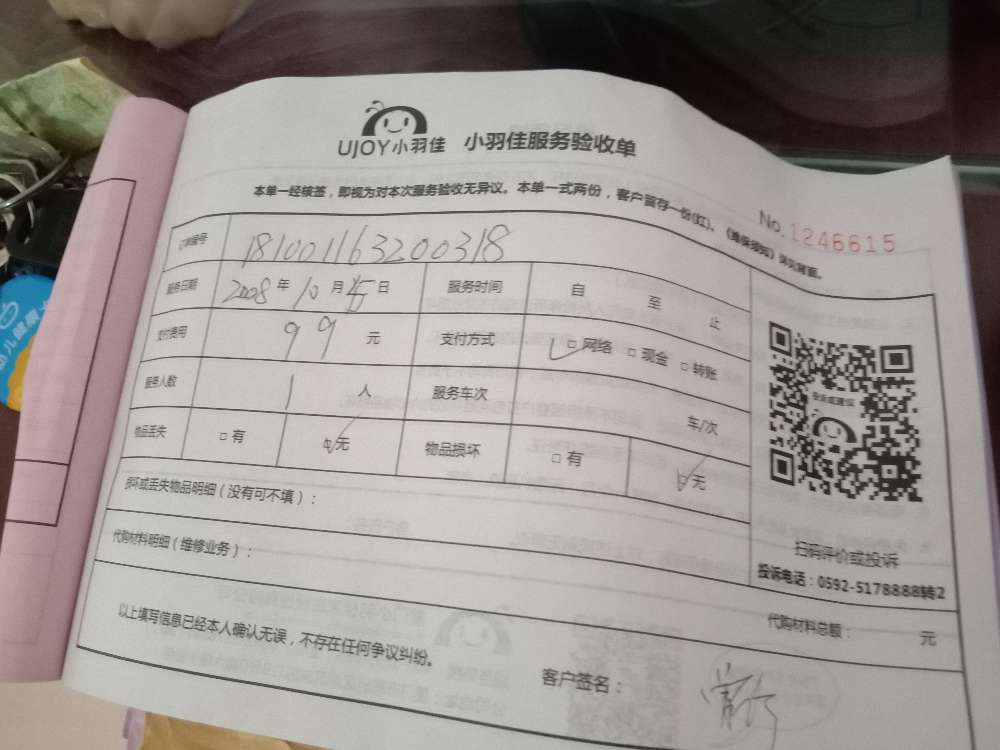 UJOY小羽佳 小羽佳服务验收单
本单一经核签，即视为对本次服务验收无异议。本单一式两份，客户留存一份(红)。《维保须知》详见背面。
No.1246615
订单编号 181001163200318
服务日期 2008年10月 日 服务时间 自 至 止
支付费用 99 元 支付方式 □网络 □现金 □转账
服务人数 1 人 服务车次 车/次
物品丢失 □有 □无 物品损坏 □有 □无
投诉或建议
损坏或丢失物品明细（没有可不填）：
扫码评价或投诉
投诉电话：0592-5178888转2
代购材料明细（维修业务）：
代购材料总额： 元
以上填写信息已经本人确认无误，不存在任何争议纠纷。
客户签名：